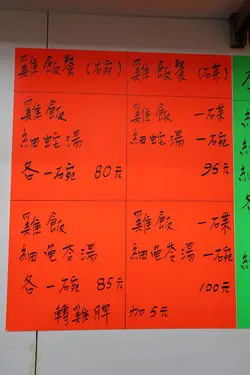 雞飯餐 (石碗)
雞飯
細蛇湯
各一石碗 80元
雞飯
細龟苓湯
各一石碗 85元
轉雞脾 加5元
雞飯餐 (石菜)
雞飯 一石菜
細蛇湯 一石碗
95元
雞飯 一石菜
細龟苓湯 一石碗
100元